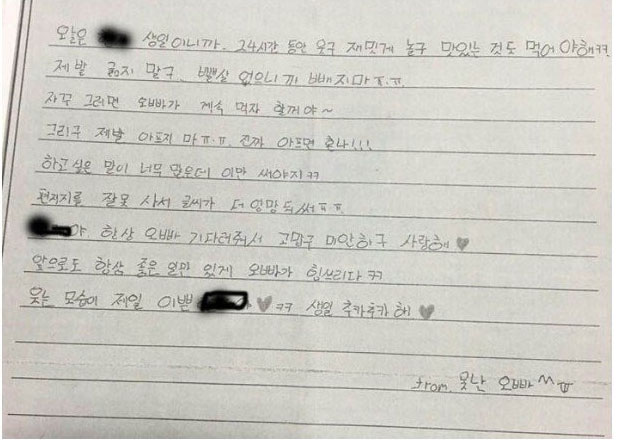 오늘은 생일이니까. 24시간 동안 웃구 재밋게 놀구 맛있는 것도 먹어야해ㅋㅋ.
제발 굶지 말구. 뺄살 없으니까 빼지마ㅠ.ㅠ.
자꾸 그러면 오빠가 계속 먹자 할꺼야~
그리구 제발 아프지 마ㅠ.ㅠ. 진짜 아프면 혼나!!!
하고 싶은 말이 너무 많은데 이만 써야지ㅋㅋ
편지지를 잘못 사서 글씨가 더 엉망 됵써ㅠ.ㅠ.
야 항상 오빠 기다려줘서 고맙구 미안하구 사랑해♥
앞으로도 항상 좋은 일만 있게 오빠가 힘쓰리다 ㅋㅋ
웃는 모습이 제일 이쁜 ♥ㅋㅋ 생일 추카추카해♥
from. 못난 오빠^^ㅠ